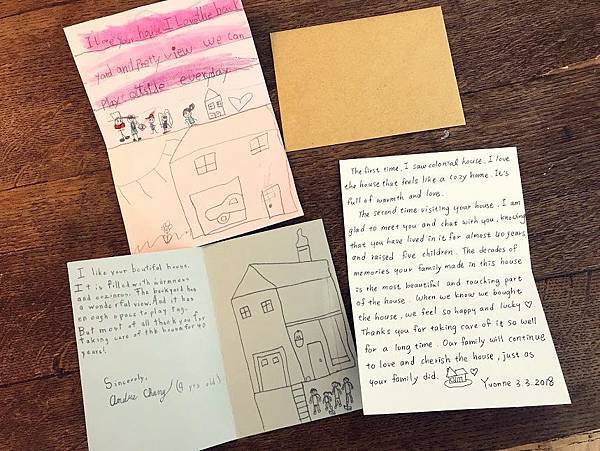 I Love your house I Love the back
yard and Pretty view we can
play outside everyday
The first time, I saw colonial house, I love
the house that feels like a cozy home. It's
full of warmth and love.
The second time visiting your house, I am
glad to meet you and chat with you, knowing
that you have lived in it for almost 40 years
and raised five children. The decades of
memories your family made in this house
is the most beautiful and touching part
of the house. When we know we bought
the house, we feel so happy and lucky ♡
Thanks you for taking care of it so well
for a long time. Our family will continue
to love and cherish the house, just as
your family did.
Yvonne 3.3.2018
I like your boutiful house.
It is filled with warmness
and coziness. The backyard has
a wonderful view. And it has
enough space to play tag.
But most of all thank you for
taking care of the house for 40
years!
Sincerely,
(9 yrs. old)